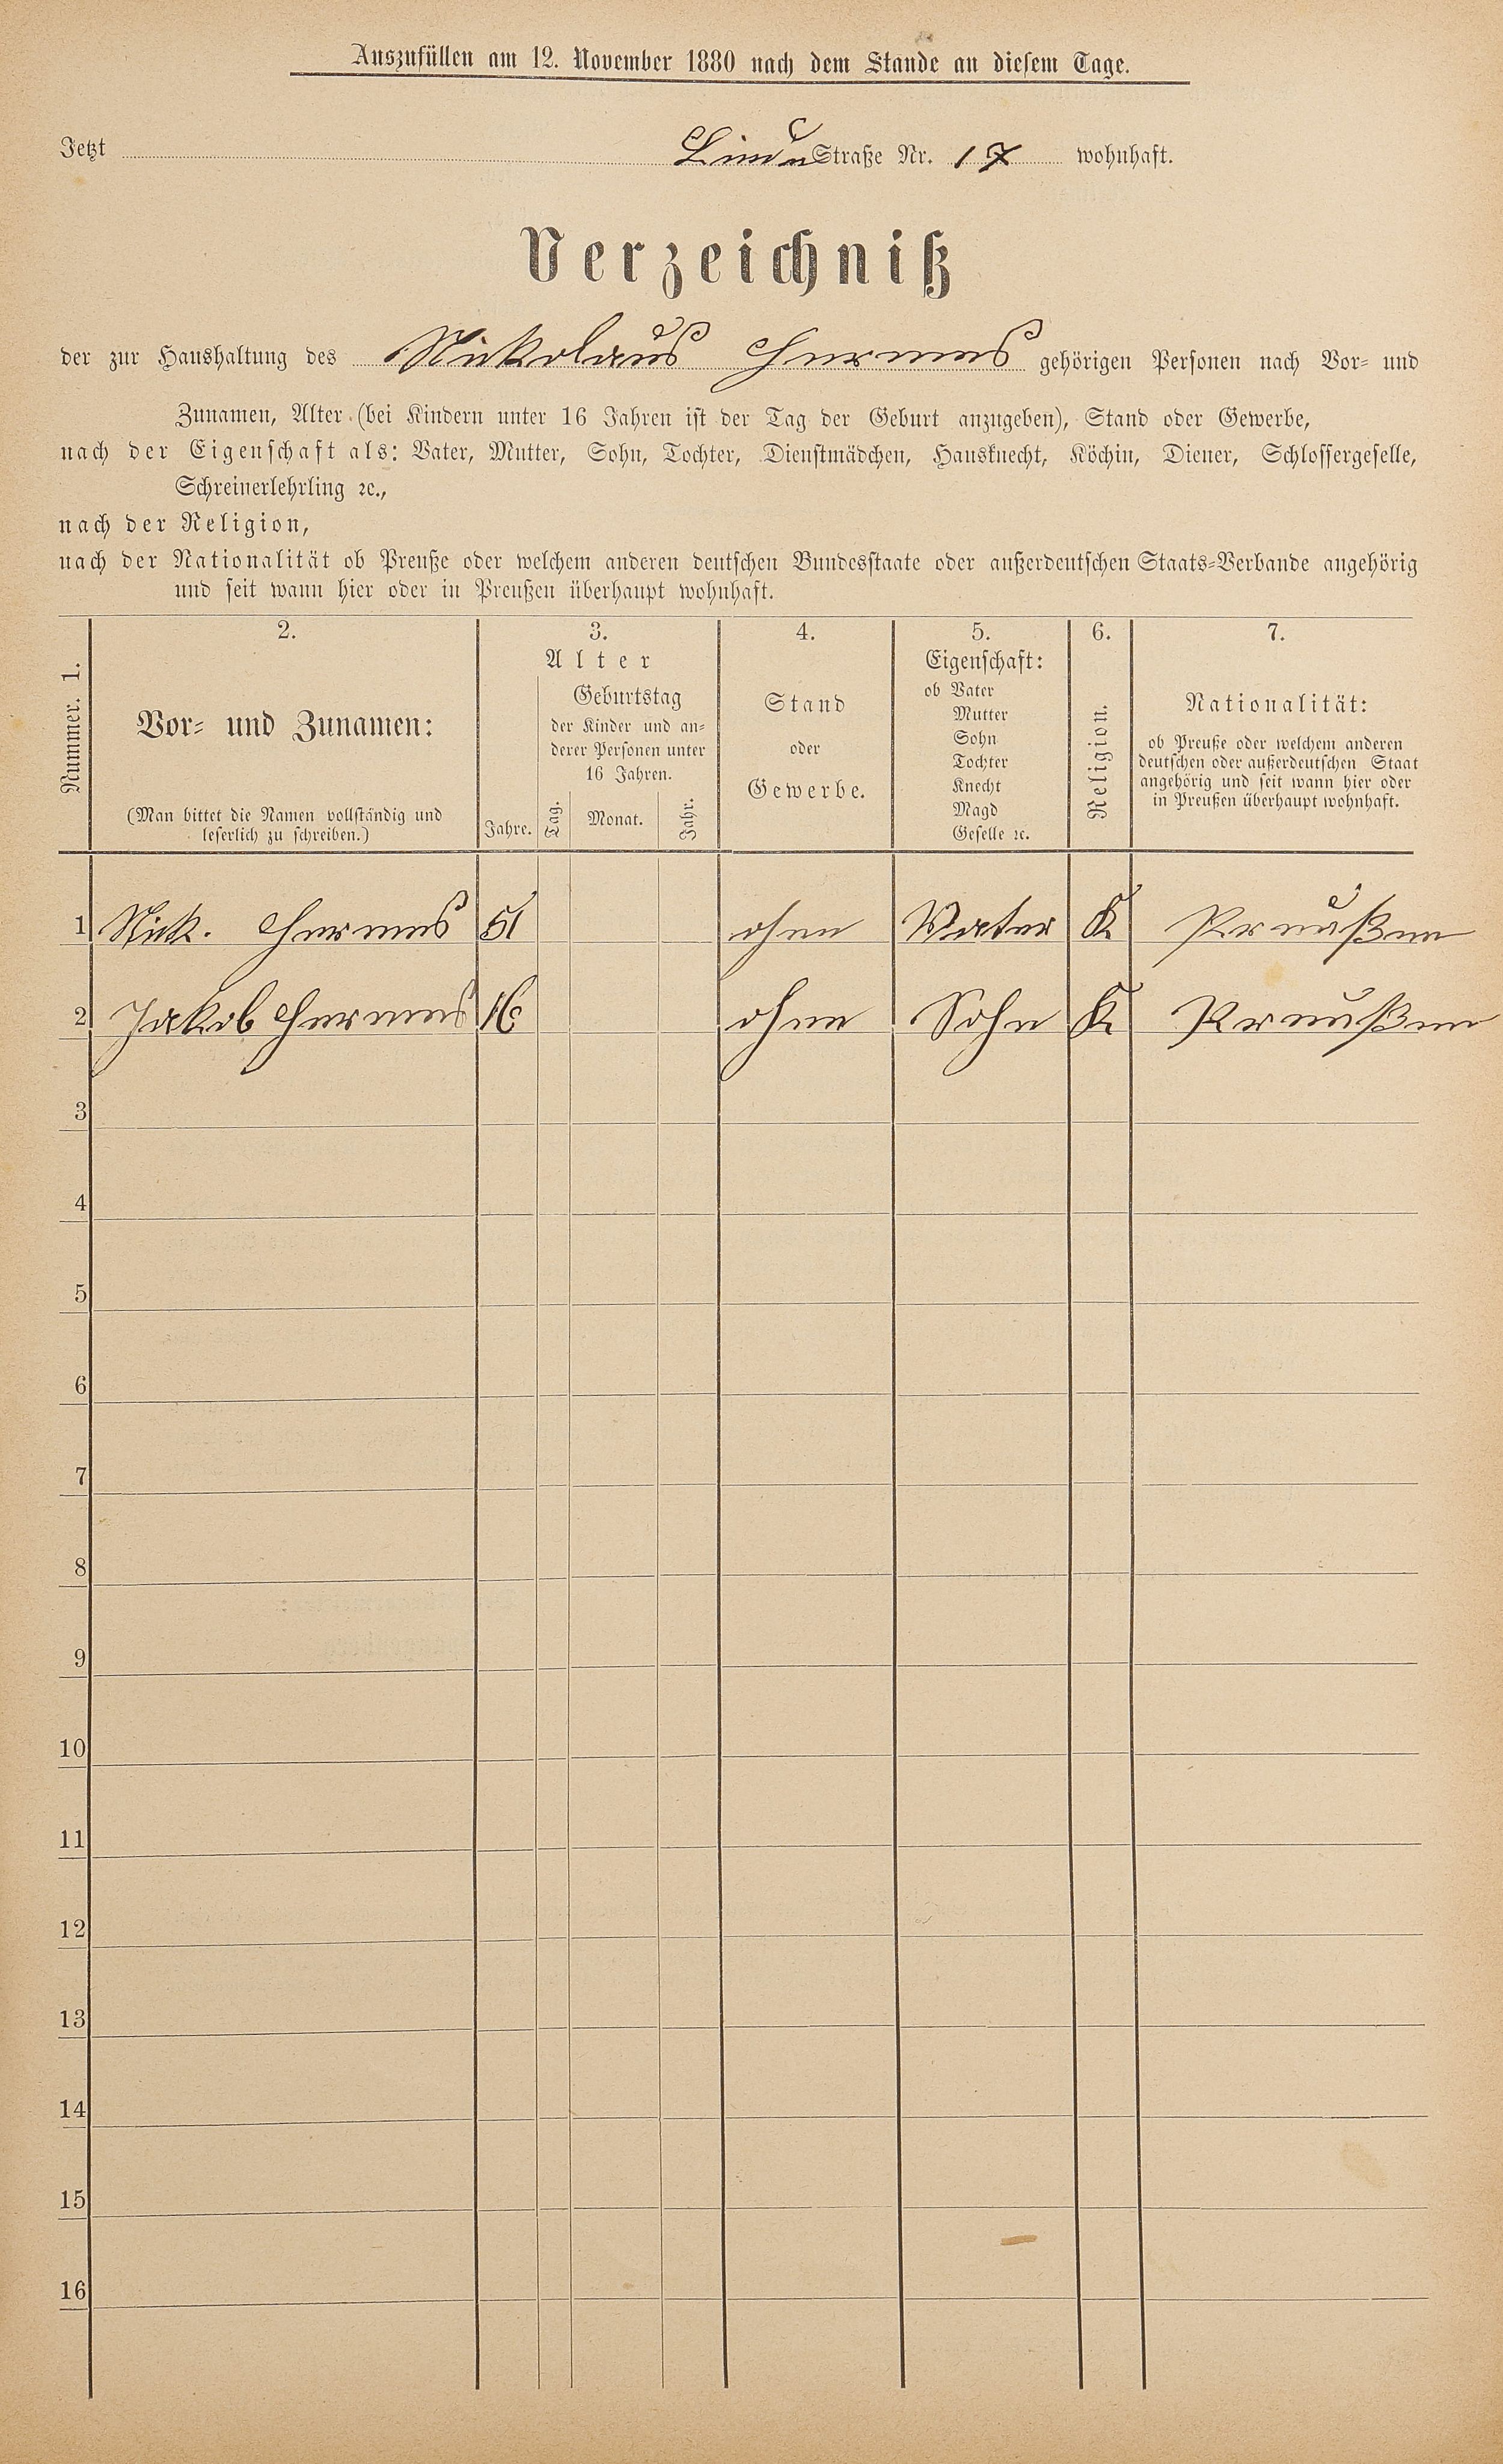 Auszufüllen am 12. November 1880 nach dem Stande an diesem Tage.
Jetzt Linden Straße Nr. 17 wohnhaft.
Verzeichniß
der zur Haushaltung des Nickolaus Hermes gehörigen Personen nach Vor- und
Zunamen, Alter (bei Kindern unter 16 Jahren ist der Tag der Geburt anzugeben), Stand oder Gewerbe,
nach der Eigenschaft als: Vater, Mutter, Sohn, Tochter, Dienstmädchen, Hausknecht, Köchin, Diener, Schlossergeselle,
Schreinerlehrling ꝛc.,
nach der Religion,
nach der Nationalität ob Preuße oder welchem anderen deutschen Bundesstaate oder außerdeutschen Staats-Verbande angehörig
und seit wann hier oder in Preußen überhaupt wohnhaft.
Nummer. 1.
2.
Vor- und Zunamen:
(Man bittet die Namen vollständig und
leserlich zu schreiben.)
3.
Alter
Jahre.
Geburtstag
der Kinder und an-
derer Personen unter
16 Jahren.
Tag. Monat. Jahr.
4.
Stand
oder
Gewerbe.
5.
Eigenschaft:
ob Vater
Mutter
Sohn
Tochter
Knecht
Magd
Geselle ꝛc.
6.
Religion.
7.
Nationalität:
ob Preuße oder welchem anderen
deutschen oder außerdeutschen Staat
angehörig und seit wann hier oder
in Preußen überhaupt wohnhaft.
1 Nick. Hermes 51 ohne Vater K Preußen
2 Jakob Hermes 16 ohne Sohn K Preußen
3
4
5
6
7
8
9
10
11
12
13
14
15
16